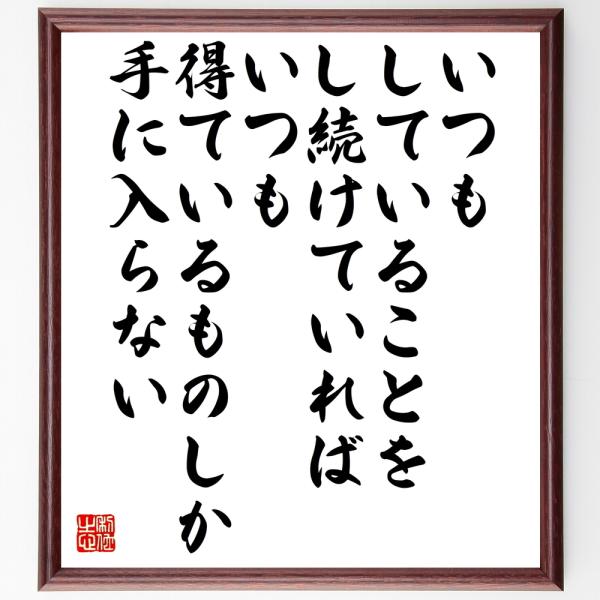 いつも
していることを
し続けていれば
いつも
得ているものしか
手に入らない